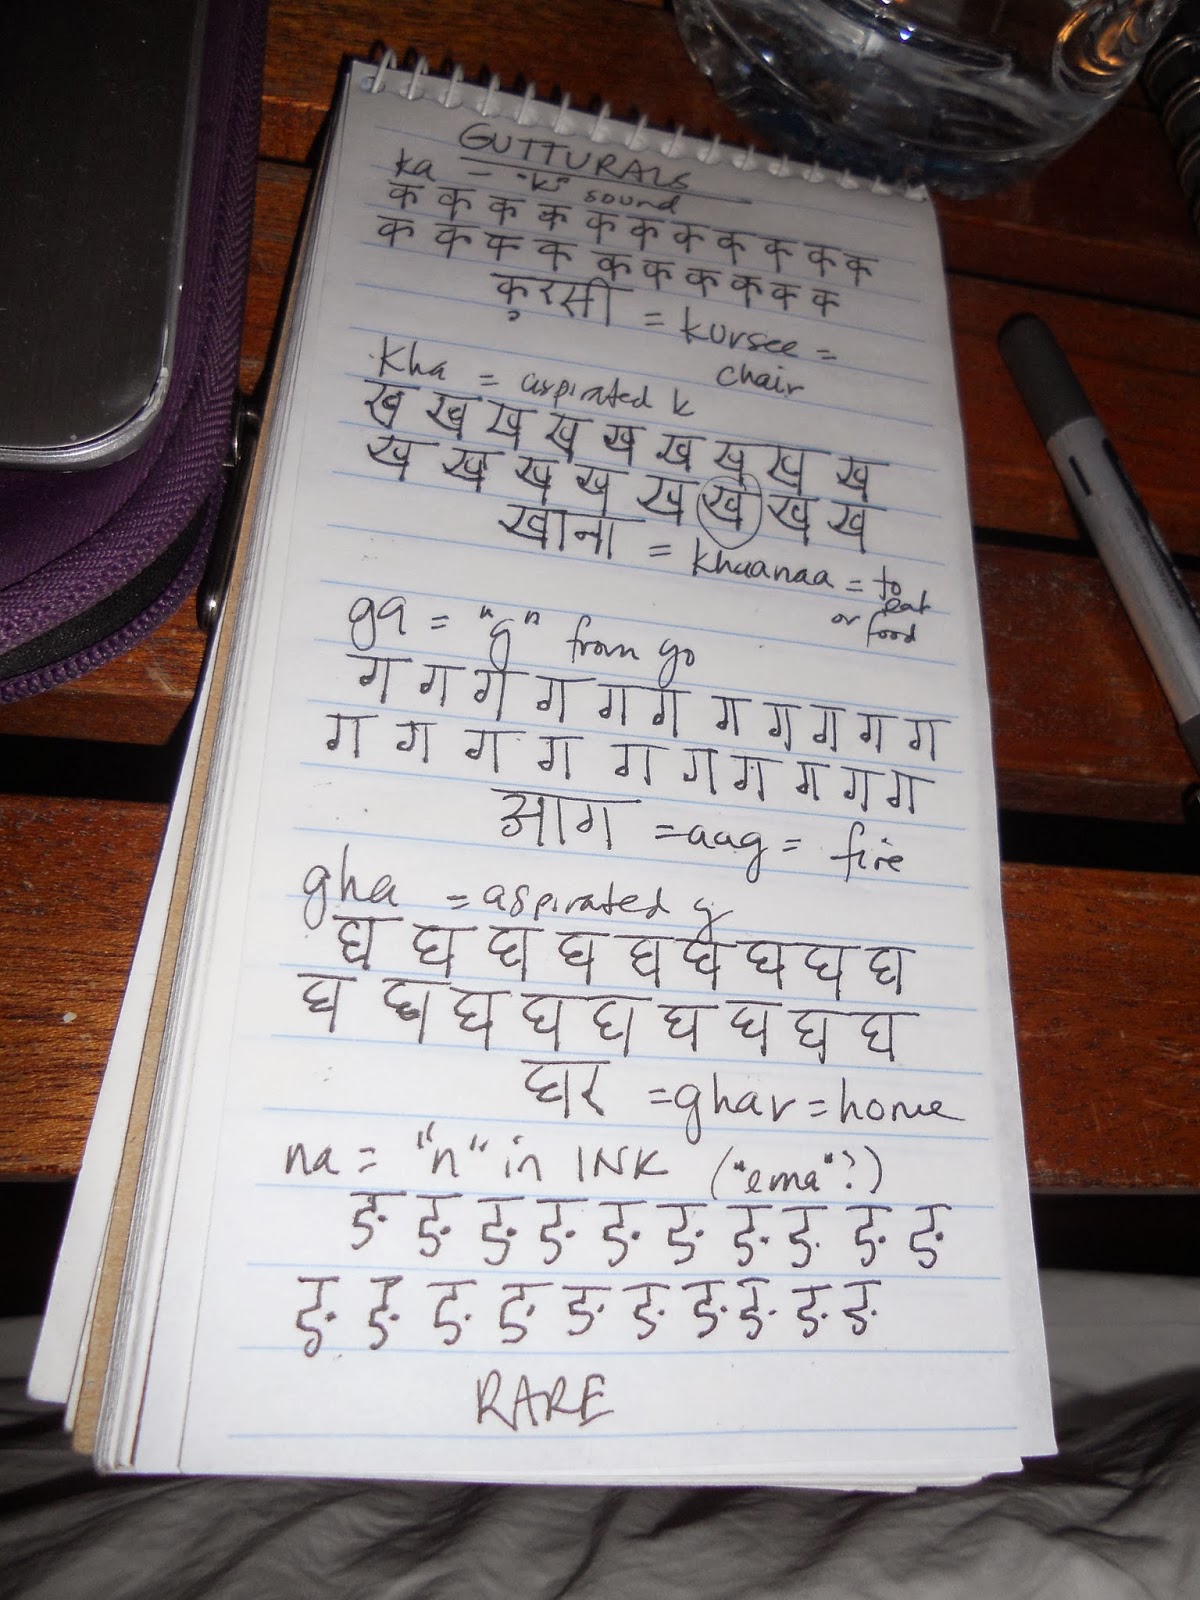 GUTTURALS
ka = "k" sound
क क क क क क क क क क क
क क क क क क क क क क
कुरसी = kursee =
chair
kha = aspirated k
ख ख ख ख ख ख ख ख ख
ख ख ख ख ख ख ख ख
खाना = khaanaa = to
eat
or food
ga = "g" from go
ग ग ग ग ग ग ग ग ग ग ग
ग ग ग ग ग ग ग ग ग ग
आग = aag = fire
gha = aspirated g
घ घ घ घ घ घ घ घ घ
घ घ घ घ घ घ घ घ घ
घर = ghar = home
na = "n" in INK ("ema"?)
ङ ङ ङ ङ ङ ङ ङ ङ ङ ङ
ङ ङ ङ ङ ङ ङ ङ ङ ङ ङ
RARE